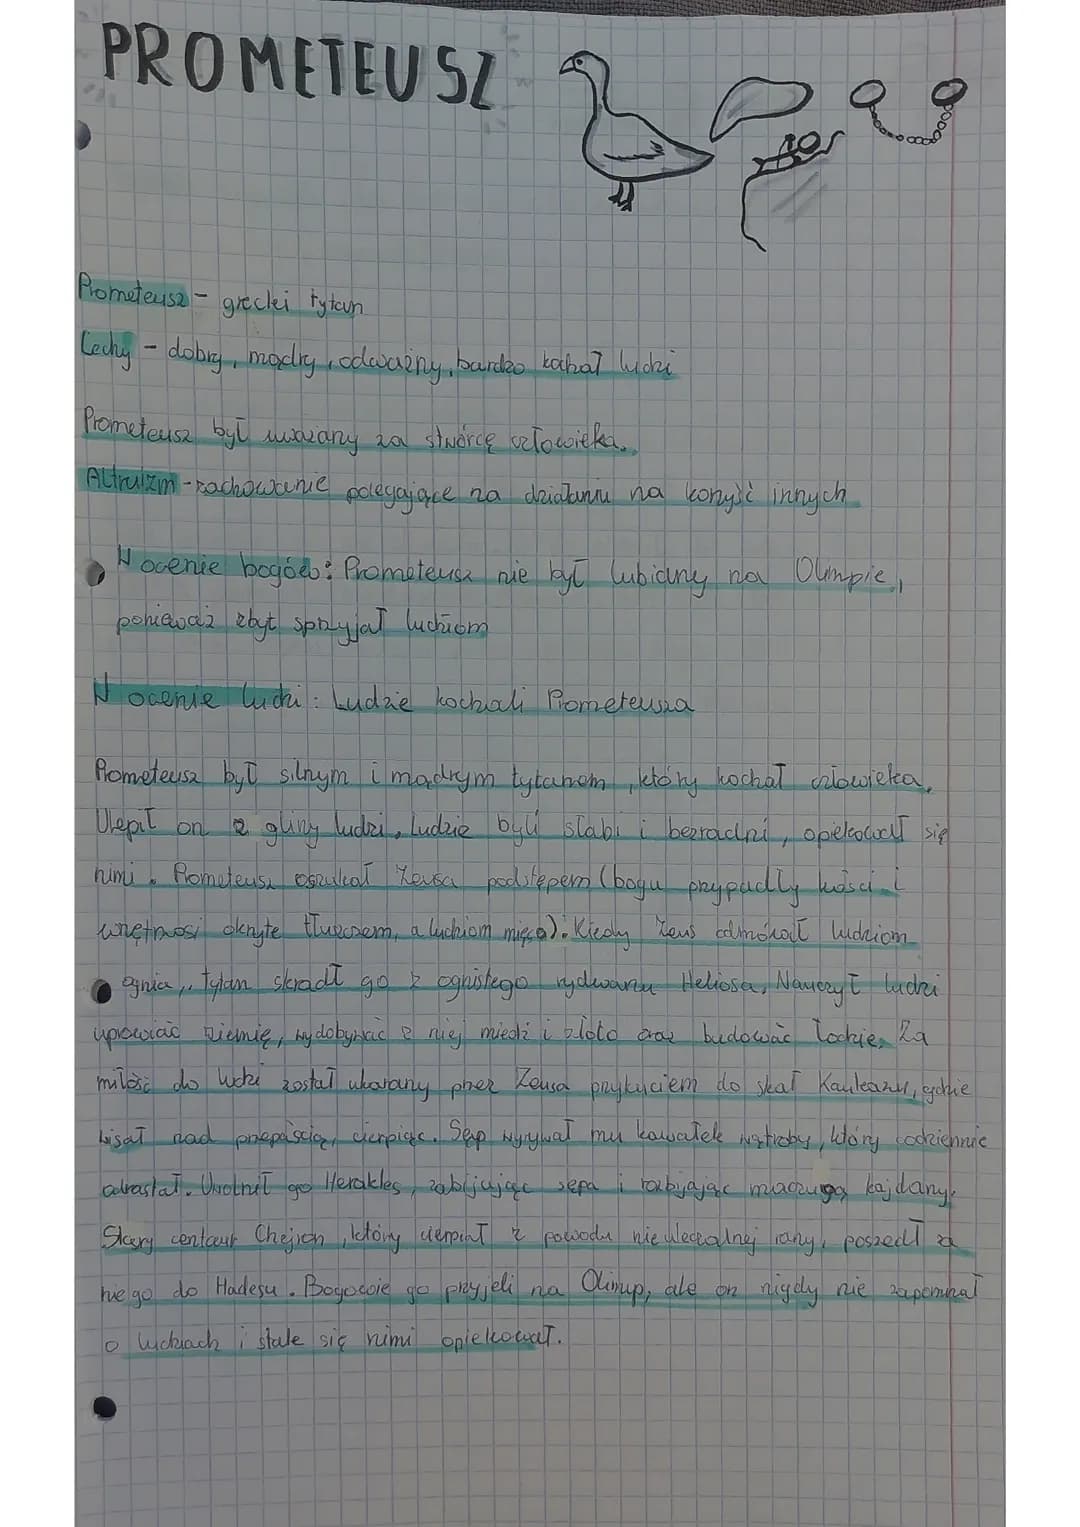 PROMETEUSZ
Prometeusz - grecki tytan
Cechy - dobry, mądry, odważny, bardzo kochał ludzi
Prometeusz był uważany za stwórcę człowieka.
Altruizm - zachowanie polegające na działaniu na korzyść innych
W ocenie bogów: Prometeusz nie był lubiany na Olimpie,
ponieważ zbyt sprzyjał ludziom
W ocenie ludzi: Ludzie kochali Prometeusza
Prometeusz był silnym i mądrym tytanem, który kochał człowieka.
Ulepił on z gliny ludzi, Ludzie byli słabi i bezradni, opiekował się
nimi. Prometeusz oszukał Zeusa podstępem (bogu przypadły kości i
wnętrzności okryte tłuszczem, a ludziom mięso). Kiedy Zeus odmówił ludziom
ognia, tytan skradł go z ognistego rydwanu Heliosa, Nauczył ludzi
uprawiać ziemię, wydobywać z niej miedź i złoto oraz budować łodzie. Za
miłość do ludzi został ukarany przez Zeusa przykuciem do skał Kaukazu, gdzie
wisał nad przepaścią, cierpiąc. Sęp wyrywał mu kawałek wątroby, który codziennie
odrastał. Uwolnił go Herakles, zabijając sępa i rozbijając maczugą kajdany.
Stary centaur Chejron, który cierpiał z powodu nieuleczalnej rany, poszedł za
niego do Hadesu. Bogowie go przyjeli na Olimp, ale on nigdy nie zapomniał
o ludziach i stale się nimi opiekował.